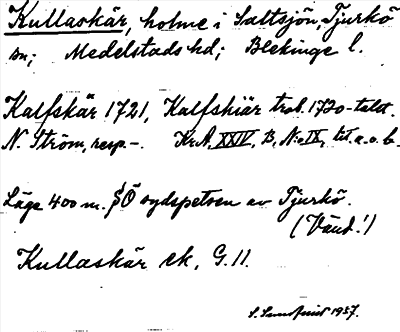 Kullaskär, holme i Saltsjön, Tjurkö
sn; Medelstads hd; Blekinge l.
Kalfskär 1721, Kalfskiär trol. 1720-talet.
N. Ström, resp -. Kr.A. XXIV, B, N:o IX, tit. a. o. b.
Läge 400 m. SÖ sydspetsen av Tjurkö.
(Vänd!)
Kullaskär ek. G. 11.
1937.